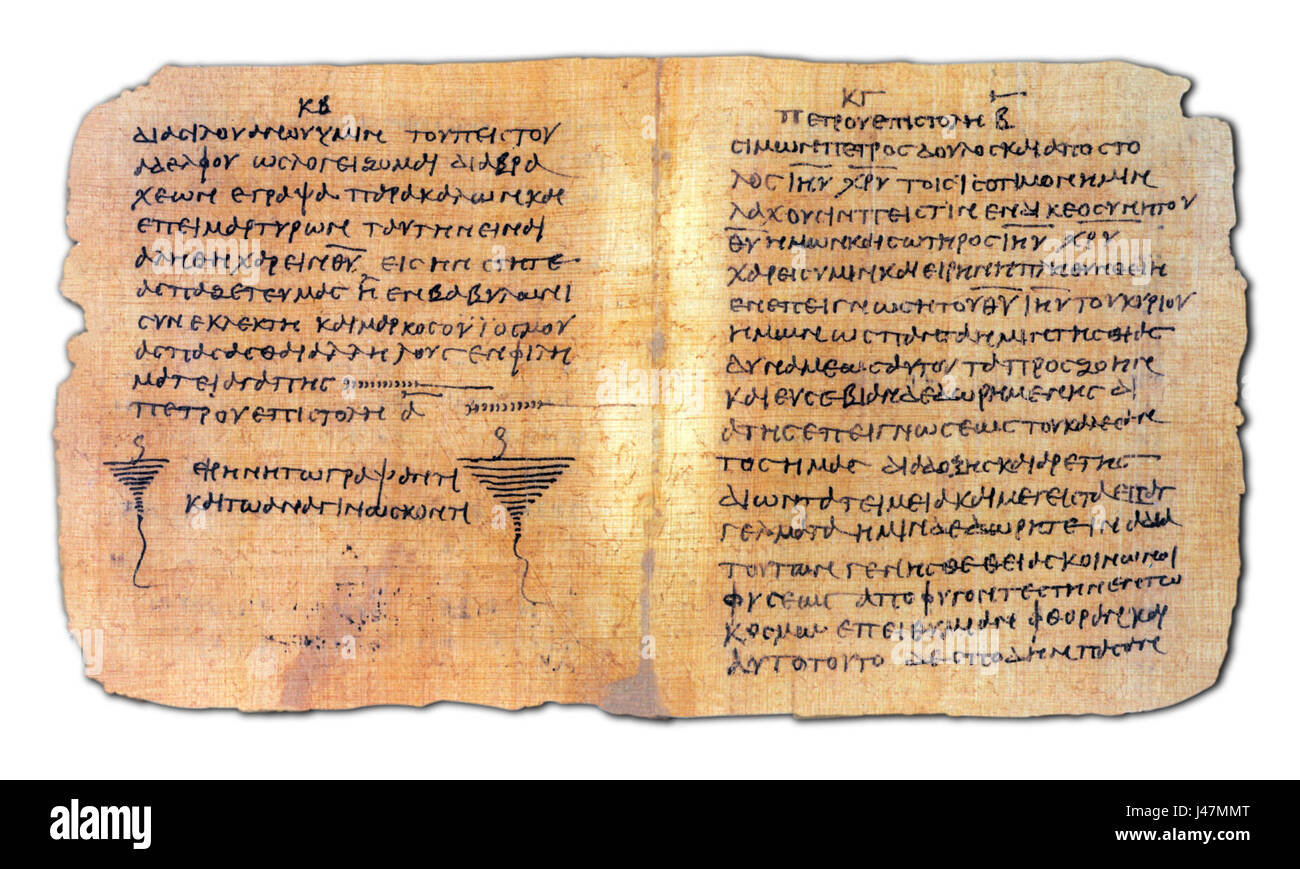 ΚΒ
ΔΙΑ ΣΙΛΟΥΑΝΟΥ ΥΜΙΝ ΤΟΥ ΠΕΙΣΤΟΥ
ΑΔΕΛΦΟΥ ΩΣ ΛΟΓΕΙΖΟΜΑΙ ΔΙΑ ΒΡΑ
ΧΕΩΝ ΕΓΡΑΨΑ ΠΑΡΑΚΑΛΩΝ ΚΑΙ
ΕΠΕΙΜΑΡΤΥΡΩΝ ΤΑΥΤΗΝ ΕΙΝΑΙ
ΑΛΗΘΗ ΧΑΡΕΙΝ ΘΥ ΕΙΣ ΗΝ ΣΤΗΤΕ
ΑΣΠΑΖΕΤΕ ΥΜΑΣ Η ΕΝ ΒΑΒΥΛΩΝΙ
ΣΥΝΕΚΛΕΚΤΗ ΚΑΙ ΜΑΡΚΟΣ Ο ΥΪΟΣ ΜΟΥ
ΑΣΠΑΣΑΣΘΑΙ ΑΛΛΗΛΟΥΣ ΕΝ ΦΙΛΗ
ΜΑΤΕΙ ΑΓΑΠΗΣ
ΠΕΤΡΟΥ ΕΠΙΣΤΟΛΗ Α
ΕΙΡΗΝΗ ΤΩ ΓΡΑΨΑΝΤΙ
ΚΑΙ ΤΩ ΑΝΑΓΙΝΩΣΚΟΝΤΙ
ΚΓ
ΠΕΤΡΟΥ ΕΠΙΣΤΟΛΗ Β
ΣΙΜΩΝ ΠΕΤΡΟΣ ΔΟΥΛΟΣ ΚΑΙ ΑΠΟΣΤΟ
ΛΟΣ ΙΗΥ ΧΡΥ ΤΟΙΣ ΙΣΟΤΙΜΟΝ ΗΜΙΝ
ΛΑΧΟΥΣΙΝ ΠΕΙΣΤΙΝ ΕΝ ΔΙΚΕΟΣΥΝΗ ΤΟΥ
ΘΥ ΗΜΩΝ ΚΑΙ ΣΩΤΗΡΟΣ ΙΗΥ ΧΡΥ
ΧΑΡΕΙΣ ΥΜΙΝ ΚΑΙ ΕΙΡΗΝΗ ΠΛΗΘΥΝΘΕΙΗ
ΕΝ ΕΠΕΙΓΝΩΣΗ ΤΟΥ ΘΥ ΙΗΥ ΤΟΥ ΚΥΡΙΟΥ
ΗΜΩΝ ΩΣ ΠΑΝΤΑ ΗΜΙΝ ΤΗΣ ΘΙΑΣ
ΔΥΝΑΜΕΩΣ ΑΥΤΟΥ ΤΑ ΠΡΟΣ ΖΩΗΝ
ΚΑΙ ΕΥΣΕΒΙΑΝ ΔΕΔΩΡΗΜΕΝΗΣ ΔΙ
Α ΤΗΣ ΕΠΕΙΓΝΩΣΕΩΣ ΤΟΥ ΚΑΛΕΣΑΝ
ΤΟΣ ΗΜΑΣ ΔΙΑ ΔΟΞΗΣ ΚΑΙ ΑΡΕΤΗΣ
ΔΙ ΩΝ ΤΑ ΤΕΙΜΕΙΑ ΚΑΙ ΜΕΓΕΙΣΤΑ ΕΠΑΓ
ΓΕΛΜΑΤΑ ΗΜΙΝ ΔΕΔΩΡΗΤΕ ΙΝΑ ΔΙΑ
ΤΟΥΤΩΝ ΓΕΝΗΣΘΕ ΘΕΙΑΣ ΚΟΙΝΩΝΟΙ
ΦΥΣΕΩΣ ΑΠΟΦΥΓΟΝΤΕΣ ΤΗΝ ΕΝ ΤΩ
ΚΟΣΜΩ ΕΠΕΙΘΥΜΙΑΝ ΦΘΟΡΑΝ ΚΑΙ
ΑΥΤΟ ΤΟΥΤΟ ΔΕ ΣΠΟΔΗΝ ΠΑΣΑΝ
alamy
J47MMT
www.alamy.com